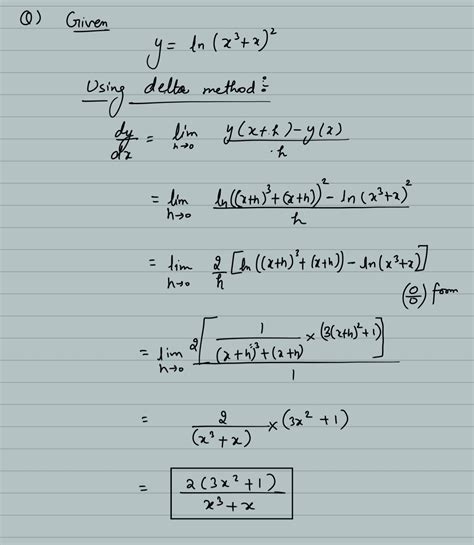 Q) Given
y = ln (x³+x)²
Using delta method :-
dy/dx = lim h→0 y(x+h) - y(x) / h
= lim h→0 ln((x+h)³+(x+h))² - ln(x³+x)² / h
= lim h→0 2/h [ln((x+h)³+(x+h)) - ln(x³+x)]
(0/0) form
= lim h→0 2[1/((x+h)³+(x+h)) × (3(x+h)²+1)] / 1
= 2/(x³+x) × (3x²+1)
= 2(3x²+1) / x³+x